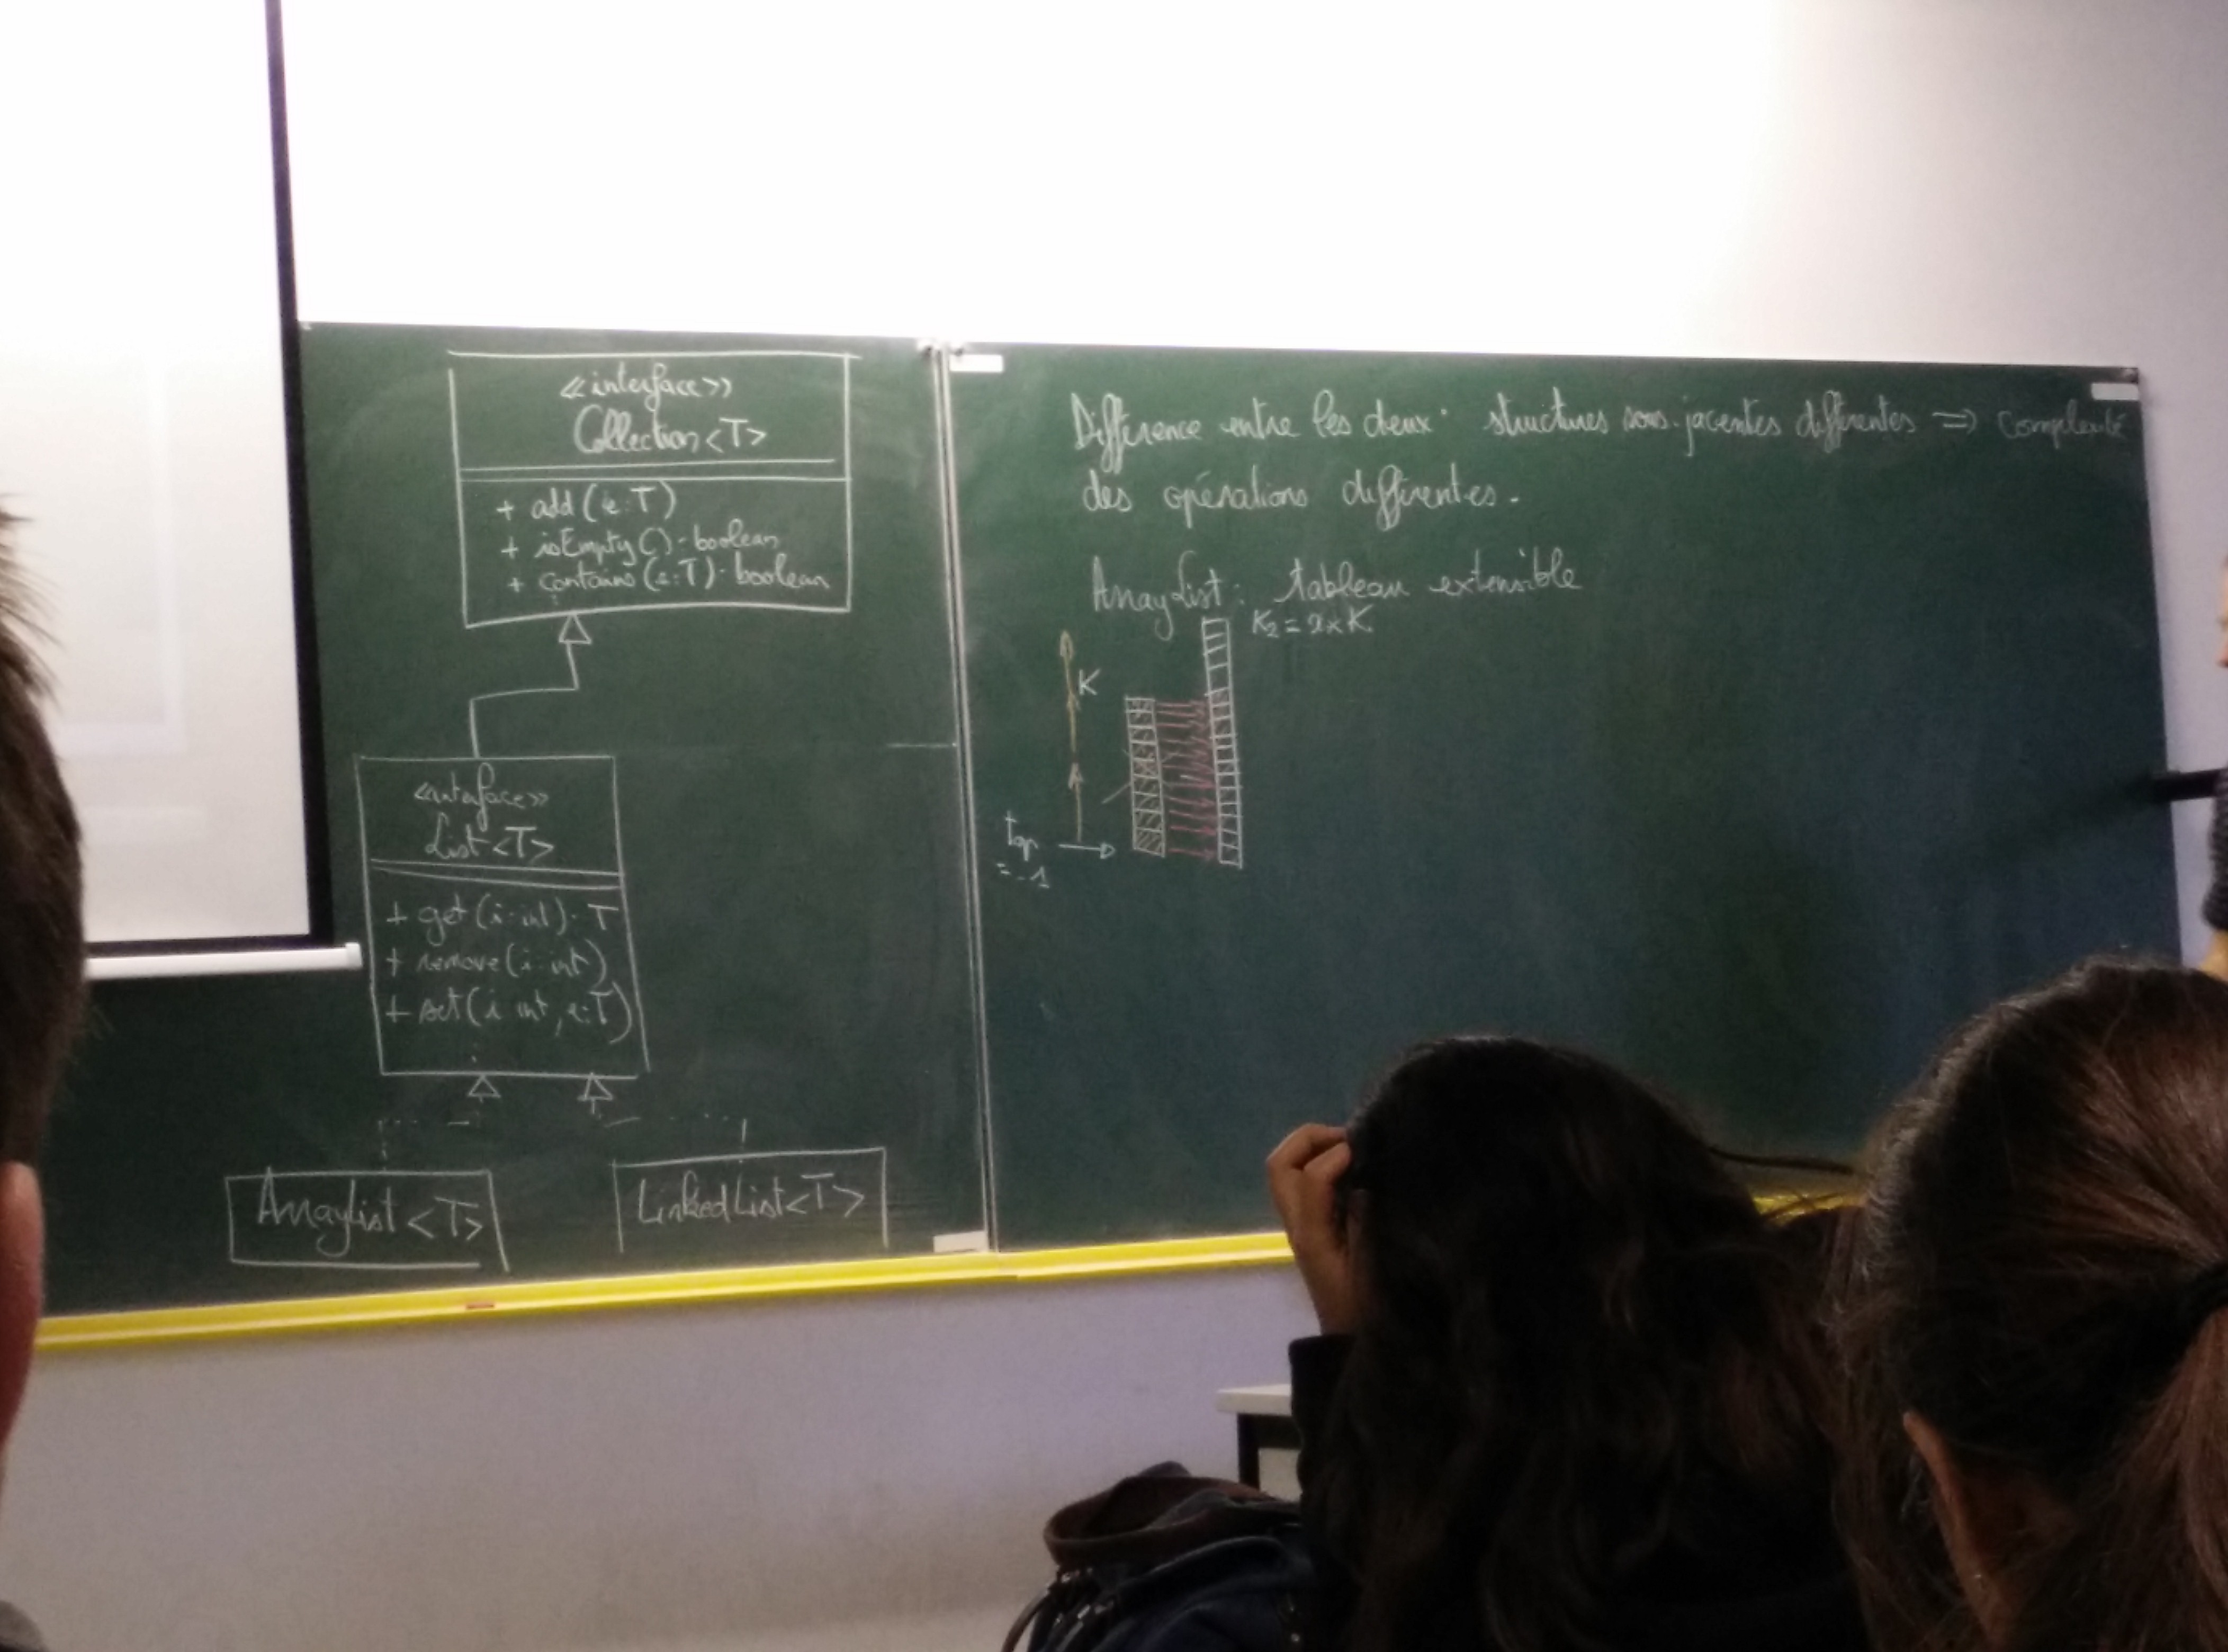 <<interface>>
Collection<T>
+ add(e:T)
+ isEmpty():boolean
+ contains(e:T):boolean
<<interface>>
List<T>
+ get(i:int):T
+ remove(i:int)
+ set(i:int, e:T)
ArrayList<T>
LinkedList<T>
Différence entre les deux: structures sous-jacentes différentes => complexité
des opérations différentes.
ArrayList: tableau extensible
K2 = α×K
K
top
=-1